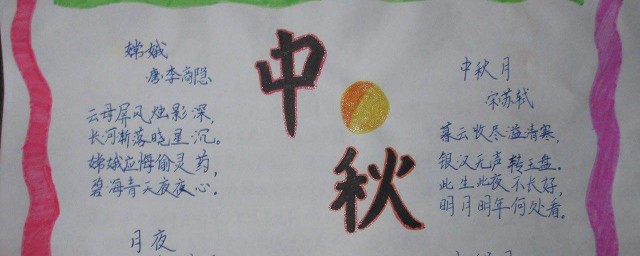 嫦娥
唐李商隐
云母屏风烛影深，
长河渐落晓星沉。
嫦娥应悔偷灵药，
碧海青天夜夜心。
月夜
中
秋
中秋月
宋苏轼
暮云收尽溢清寒，
银汉无声转玉盘。
此生此夜不长好，
明月明年何处看。